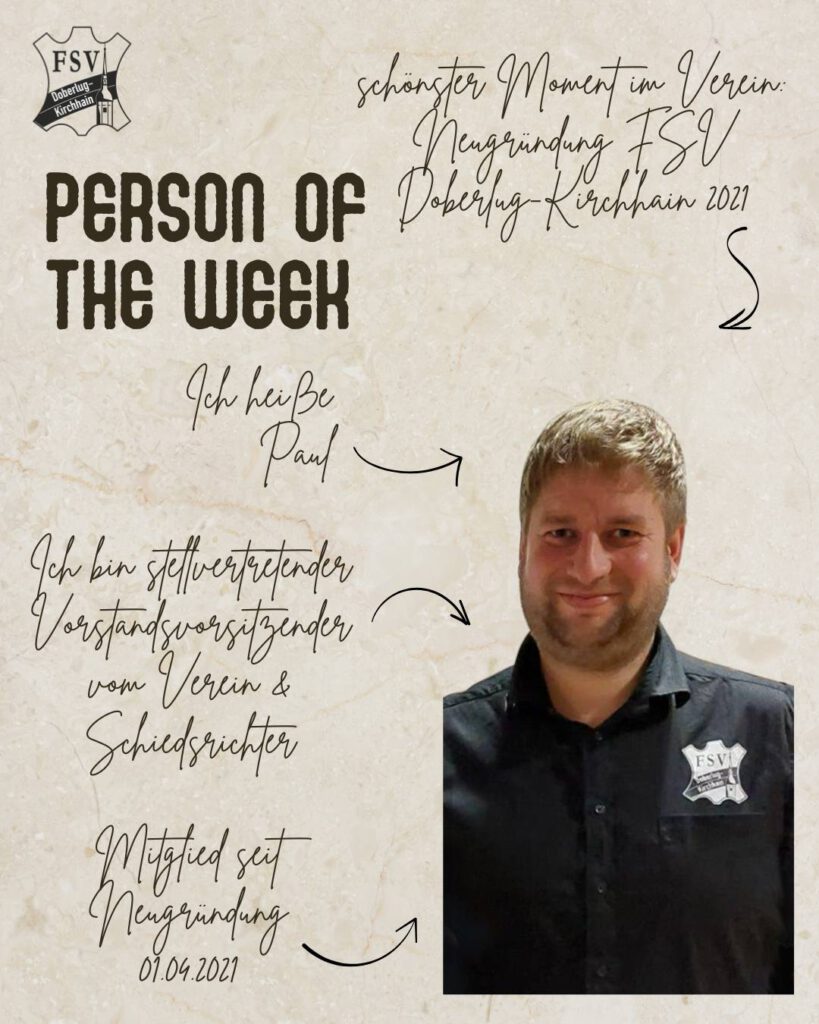 FSV
Doberlug-
Kirchhain
schönster Moment im Verein:
Neugründung FSV
Doberlug-Kirchhain 2021
PERSON OF
THE WEEK
Ich heiße
Paul
Ich bin stellvertretender
Vorstandsvorsitzender
vom Verein &
Schiedsrichter
Mitglied seit
Neugründung
01.04.2021
FSV
Doberlug-
Kirchhain